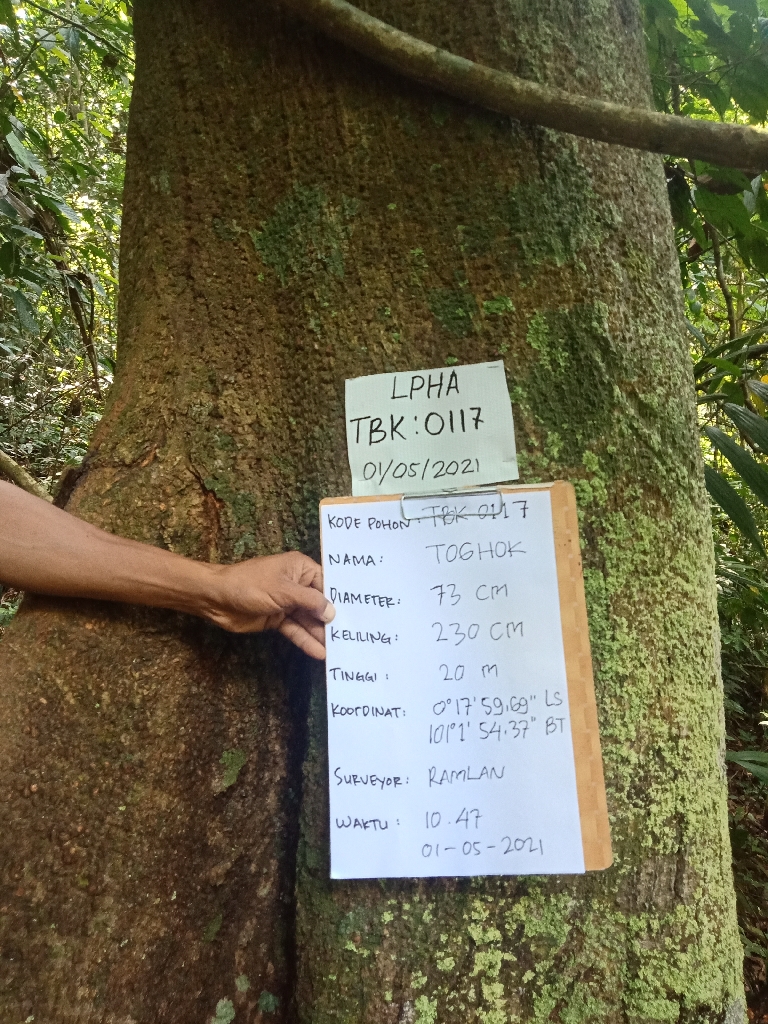 LPHA
TBK:0117
01/05/2021
KODE POHON: TBK 0117
NAMA: TOGHOK
DIAMETER: 73 CM
KELILING: 230 CM
TINGGI: 20 M
KOORDINAT: 0°17'59.69" LS
101°1'54.37" BT
SURVEYOR: RAMLAN
WAKTU: 10.47
01-05-2021